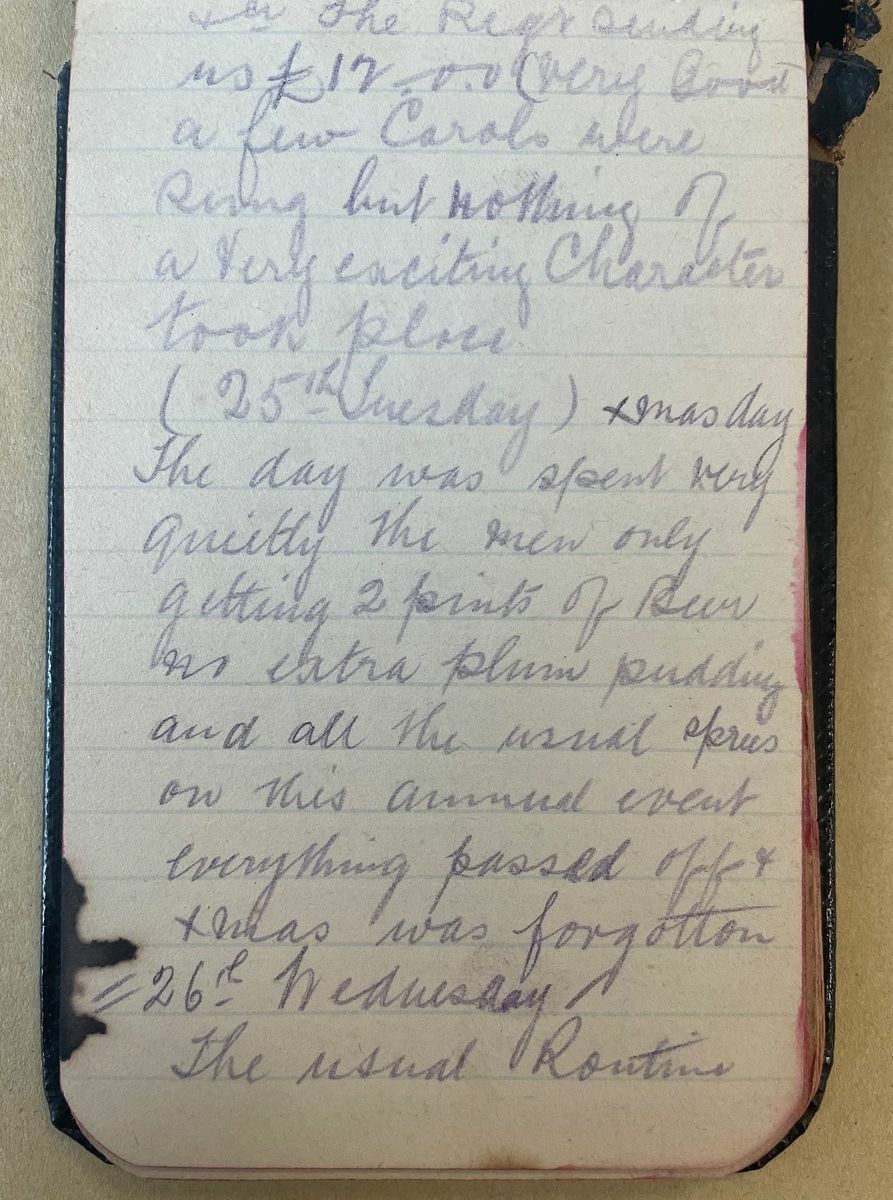 The Regt sending
us £12-0.0 (Very Good
a few Carols were
sung but nothing of
a Very exciting Character
took place
(25th Tuesday) xmas day
The day was spent very
quietly the men only
getting 2 pints of Beer
no extra plum pudding
and all the usual sprees
on this annual event
everything passed off &
xmas was forgotton
=26th Wednesday
The usual Routine